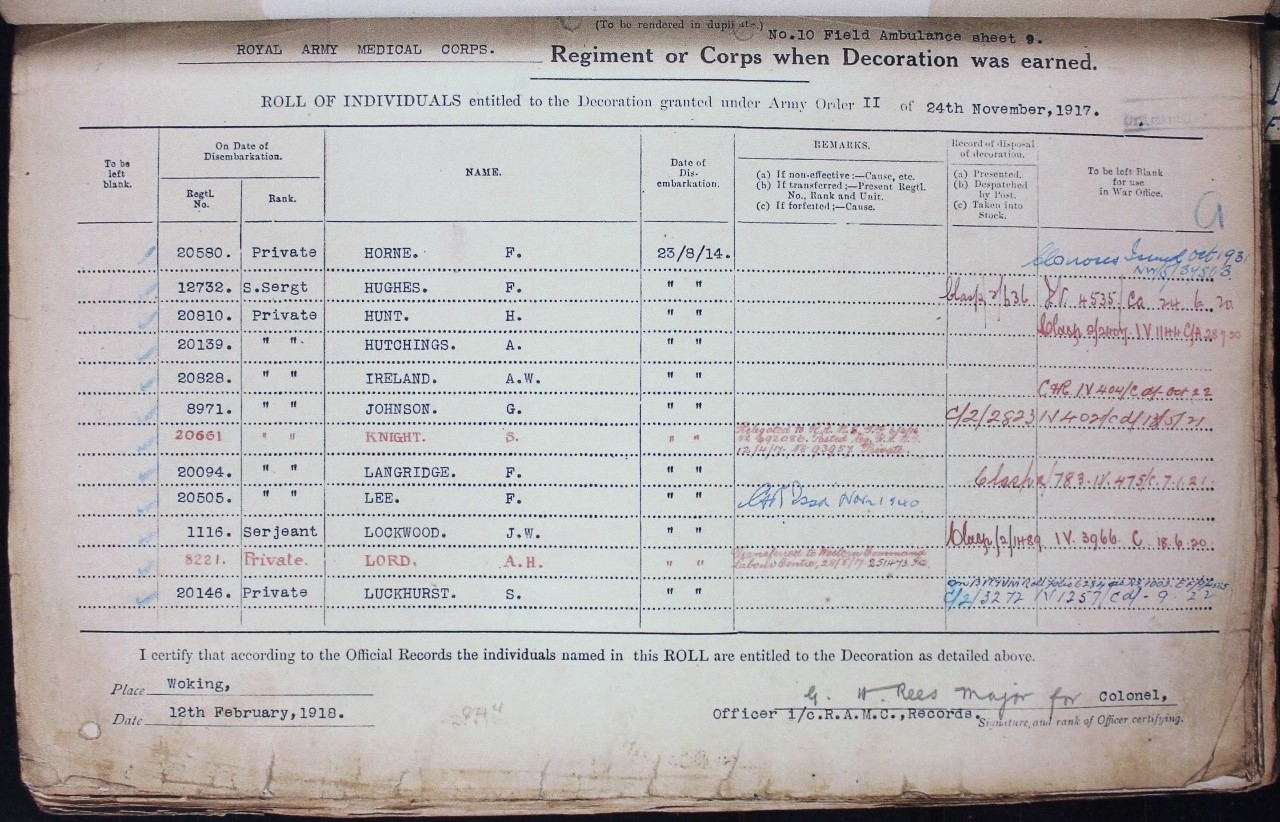 (To be rendered in duplicate.)
No.10 Field Ambulance sheet 9.
ROYAL ARMY MEDICAL CORPS.
Regiment or Corps when Decoration was earned.
ROLL OF INDIVIDUALS entitled to the Decoration granted under Army Order II of 24th November, 1917.
To be left blank.
On Date of Disembarkation.
Regtl. No.
Rank.
NAME.
Date of Disembarkation.
REMARKS.
(a) If non-effective:—Cause, etc.
(b) If transferred:—Present Regtl. No., Rank and Unit.
(c) If forfeited:—Cause.
Record of disposal of decoration.
(a) Presented.
(b) Despatched by Post.
(c) Taken into Stock.
To be left Blank for use in War Office.
20580. Private HORNE. F. 23/8/14. Issued Oct 1931
12732. S.Sergt HUGHES. F. " " Clasp 4535/ 24.6.20
20810. Private HUNT. H. " " Clasp IV 1144 C/A
20139. " " HUTCHINGS. A. " "
20828. " " IRELAND. A.W. " " IV 404/Cd/- Oct 22
8971. " " JOHNSON. G. " " C/2/2823 IV 402/cd/ 21
20661 " " KNIGHT. S. " " Posted 12/4/17. Private.
20094. " " LANGRIDGE. F. " " Clasp 783. IV. 475/c. 7.1.21.
20505. " " LEE. F. " " Nov 1940
1116. Serjeant LOCKWOOD. J.W. " " Clasp IV. 3966. C. 18.6.20.
8221. Private. LORD. A.H. " " Transferred to Western Command Labour Centre, 28/8/17.
20146. Private LUCKHURST. S. " " C/2/3272 IV 1257/Cd/- 9 22
I certify that according to the Official Records the individuals named in this ROLL are entitled to the Decoration as detailed above.
Place Woking,
Date 12th February, 1918.
G. H. Rees Major for Colonel,
Officer i/c.R.A.M.C., Records.
Signature, and rank of Officer certifying.